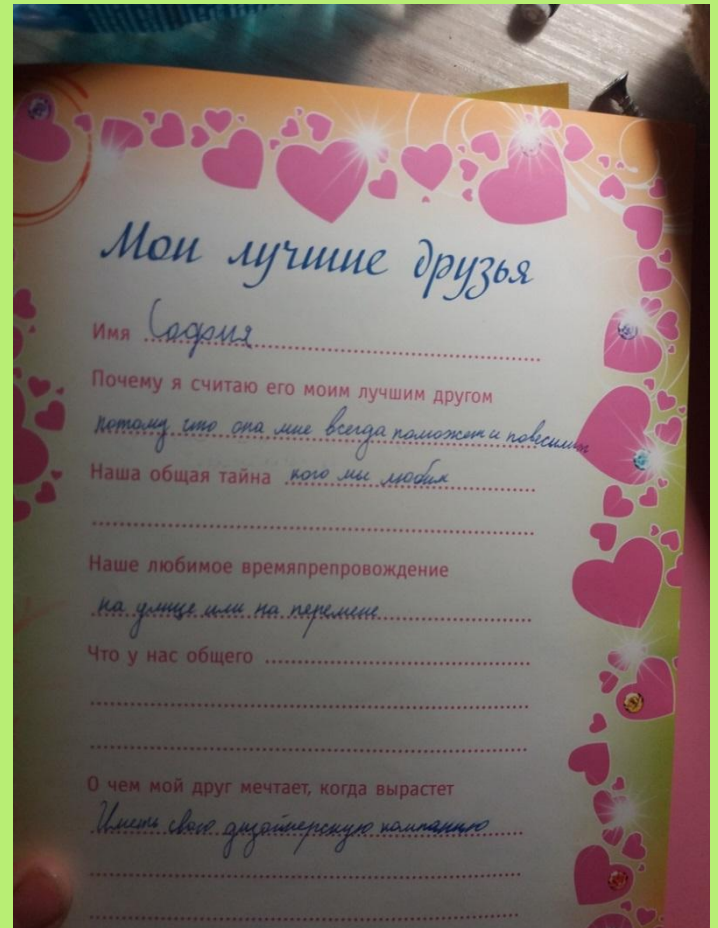 Мои лучшие друзья
Имя София
Почему я считаю его моим лучшим другом
потому что она мне всегда поможет и повеселит
Наша общая тайна кого мы любим
Наше любимое времяпрепровождение
на улице или на перемене
Что у нас общего
О чем мой друг мечтает, когда вырастет
Иметь свою дизайнерскую компанию